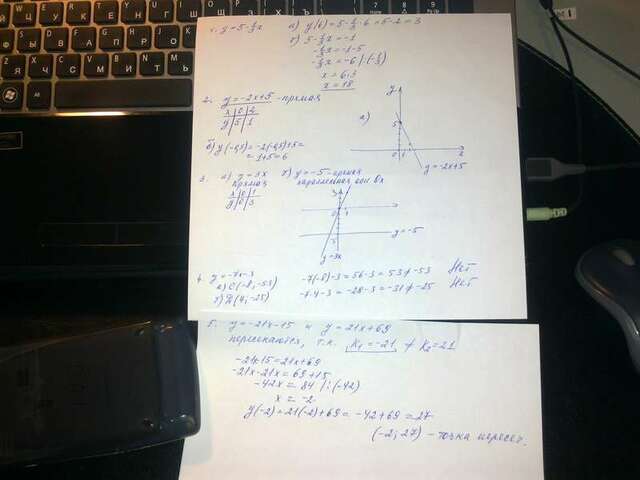 1. y=5-⅓x а) y(6)=5-⅓·6=5-2=3
б) 5-⅓x=-1
-⅓x=-1-5
-⅓x=-6 |:(-⅓)
x=6·3
x=18
2. y=-2x+5 - прямая
x | 0 | 2
y | 5 | 1
а)
y
5
0 1 x
y=-2x+5
б) y(-0,5)=-2(-0,5)+5=
=1+5=6
3. а) y=3x б) y=-5 - прямая
прямая параллельная оси Ox
x | 0 | 1
y | 0 | 3
3
0 1
y=-5
y=3x
4. y=-7x-3 -7(-8)-3=56-3=53≠-53 Нет
а) C(-8;-53) -7·4-3=-28-3=-31≠-25 Нет
б) D(4;-25)
5. y=-21x-15 и y=21x+69
пересекаются, т.к. K₁=-21 ≠ K₂=21
-21x-15=21x+69
-21x-21x=69+15
-42x=84 |:(-42)
x=-2
y(-2)=21(-2)+69=-42+69=27
(-2; 27) - точка пересеч.